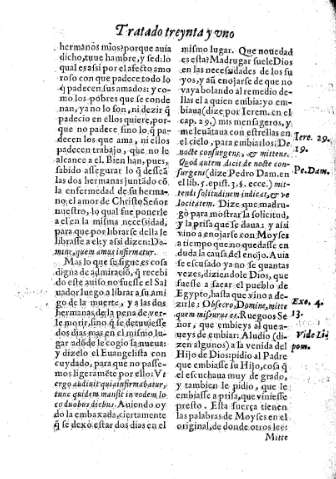 Tratado treynta y vno
hermanos mios? porque auia
dicho, tuue hambre, y sed: lo
qual es assi por el afecto amo
roso con que padece todo lo
q̃ padecen sus amados: y co
mo los pobres que se conde
nan, ya no lo son, ni dezir q̃
padecio en ellos quiere, por
que no padece sino lo q̃ pa-
decen los que ama, ni ellos
padecen trabajo, que no le
alcance a el. Bien han, pues,
sabido assegurar lo q̃ dessean
las dos hermanas juntãdo cõ
la enfermedad de su herma-
no, el amor de Christo Señor
nuestro, lo qual fue ponerle
a el en la misma necessidad,
para que por librarse della le
librasse a el: y assi dizen: Do-
mine, quem amas infirmatur.
Mas lo que se sigue, es cosa
digna de admiracion, q̃ recebi
do este auiso no fuesse el Sal
uador luego a librar a su ami
go de la muerte, y a las dos
hermanas de la pena de ver-
le morir, sino que se detuuiesse
dos dias mas en el mismo lu-
gar adõde le cogio la nueua:
y dizelo el Euangelista con
cuydado, para que no passe-
mos ligeramẽte por ello: Vt
ergo audiuit quia infirmabatur,
tunc quidem mansit in eodem lo-
co duobus diebus. Auiendo oy
do la embaxada, ciertamente
q̃ se dexò estar dos dias en el
mismo lugar. Que nouedad
es esta? Madrugar suele Dios
en las necessidades de los su
yos, y aũ enojarse de que no
vaya bolando al remedio de-
llas el a quien embia: yo em-
biaua (dize por Ierem. en el
cap. 29.) mis mensageros, y
me leuãtaua con estrellas en
el cielo, para embiarlos: De
nocte consurgens, & mittens.
Quod autem dicit de nocte con-
surgens (dize Pedro Dam. en
el lib. 5. epist. 3.
tentis solicitudinem indicat, & ve
locitatem. Dize que madru-
gò para mostrar la solicitud,
y la prisa que se daua: y assi
vino a enojarse con Moyses
a tiempo que no quedasse en
duda la causa del enojo. Auia
se escusado ya no se quantas
vezes, diziendole Dios, que
fuesse a sacar el pueblo de
Egypto, hasta que vino a de-
zirle: Obsecro, Domine, mitte
quem missurus es. Ruegoos Se
ñor, que embieys al que a-
ueys de embiar: Aludio (di-
zen algunos) a la venida del
Hijo de Dios: pidio al Padre
que embiasse su Hijo, cosa q̃
el escuchaua muy de grado,
y tambien le pidio, que le
embiasse a prisa, que viniesse
presto. Esta fuerça tienen
las palabras de Moyses en el
original, de donde otros leen:
Mitte
Iere. 29.
19.
Pe. Dam.
Exo. 4.
13.
Vide Li
pom.